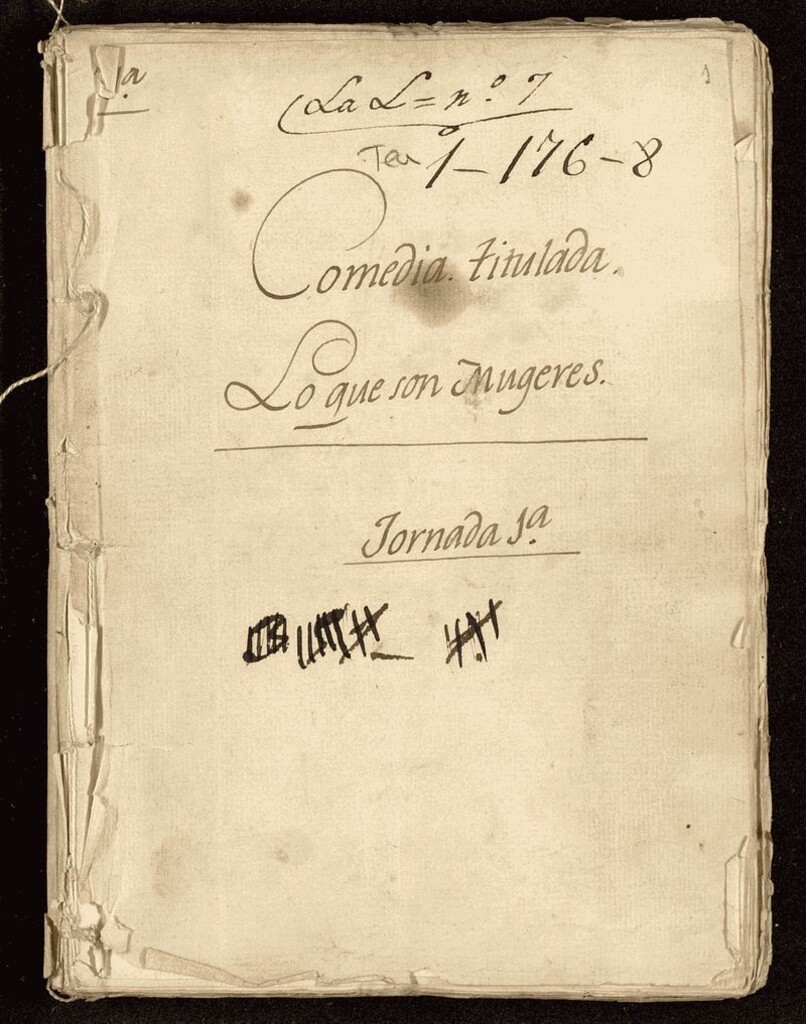 1.a
La L = n.º 7
Tea 1-176-8
Comedia. titulada.
Lo que son Mugeres.
Jornada 1.a